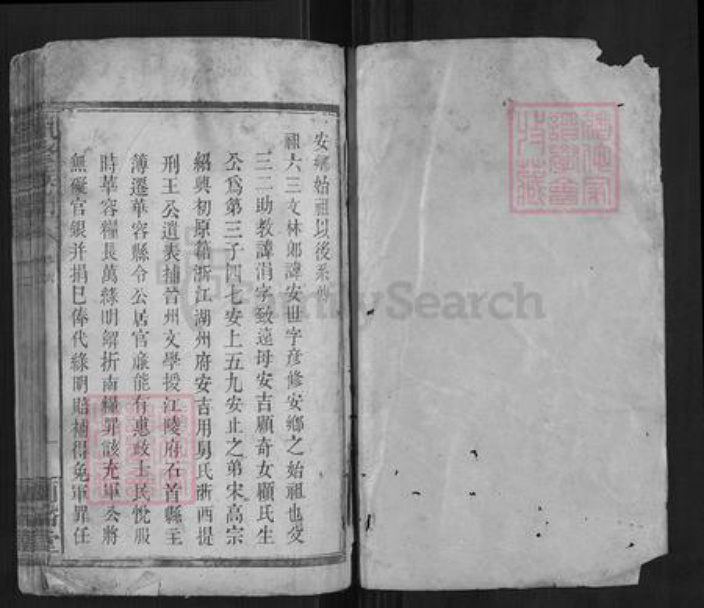 安鄉始祖以後系傳
祖六三文林郎諱安世字彥修安鄉之始祖也父
三二助教諱涓字致遠母安吉顧奇女顧氏生
公爲第三子四七安上五九安止之弟宋高宗
紹興初原籍浙江湖州府安吉用舅氏浙西提
刑王公遺表補晉州文學授江陵府石首縣主
簿遷華容縣令公居官廉能有惠政士民悅服
時華容糧長萬綠明解折南糧罪該充軍公將
無礙官銀并捐已俸代綠明賠補得免軍罪任
FamilySearch